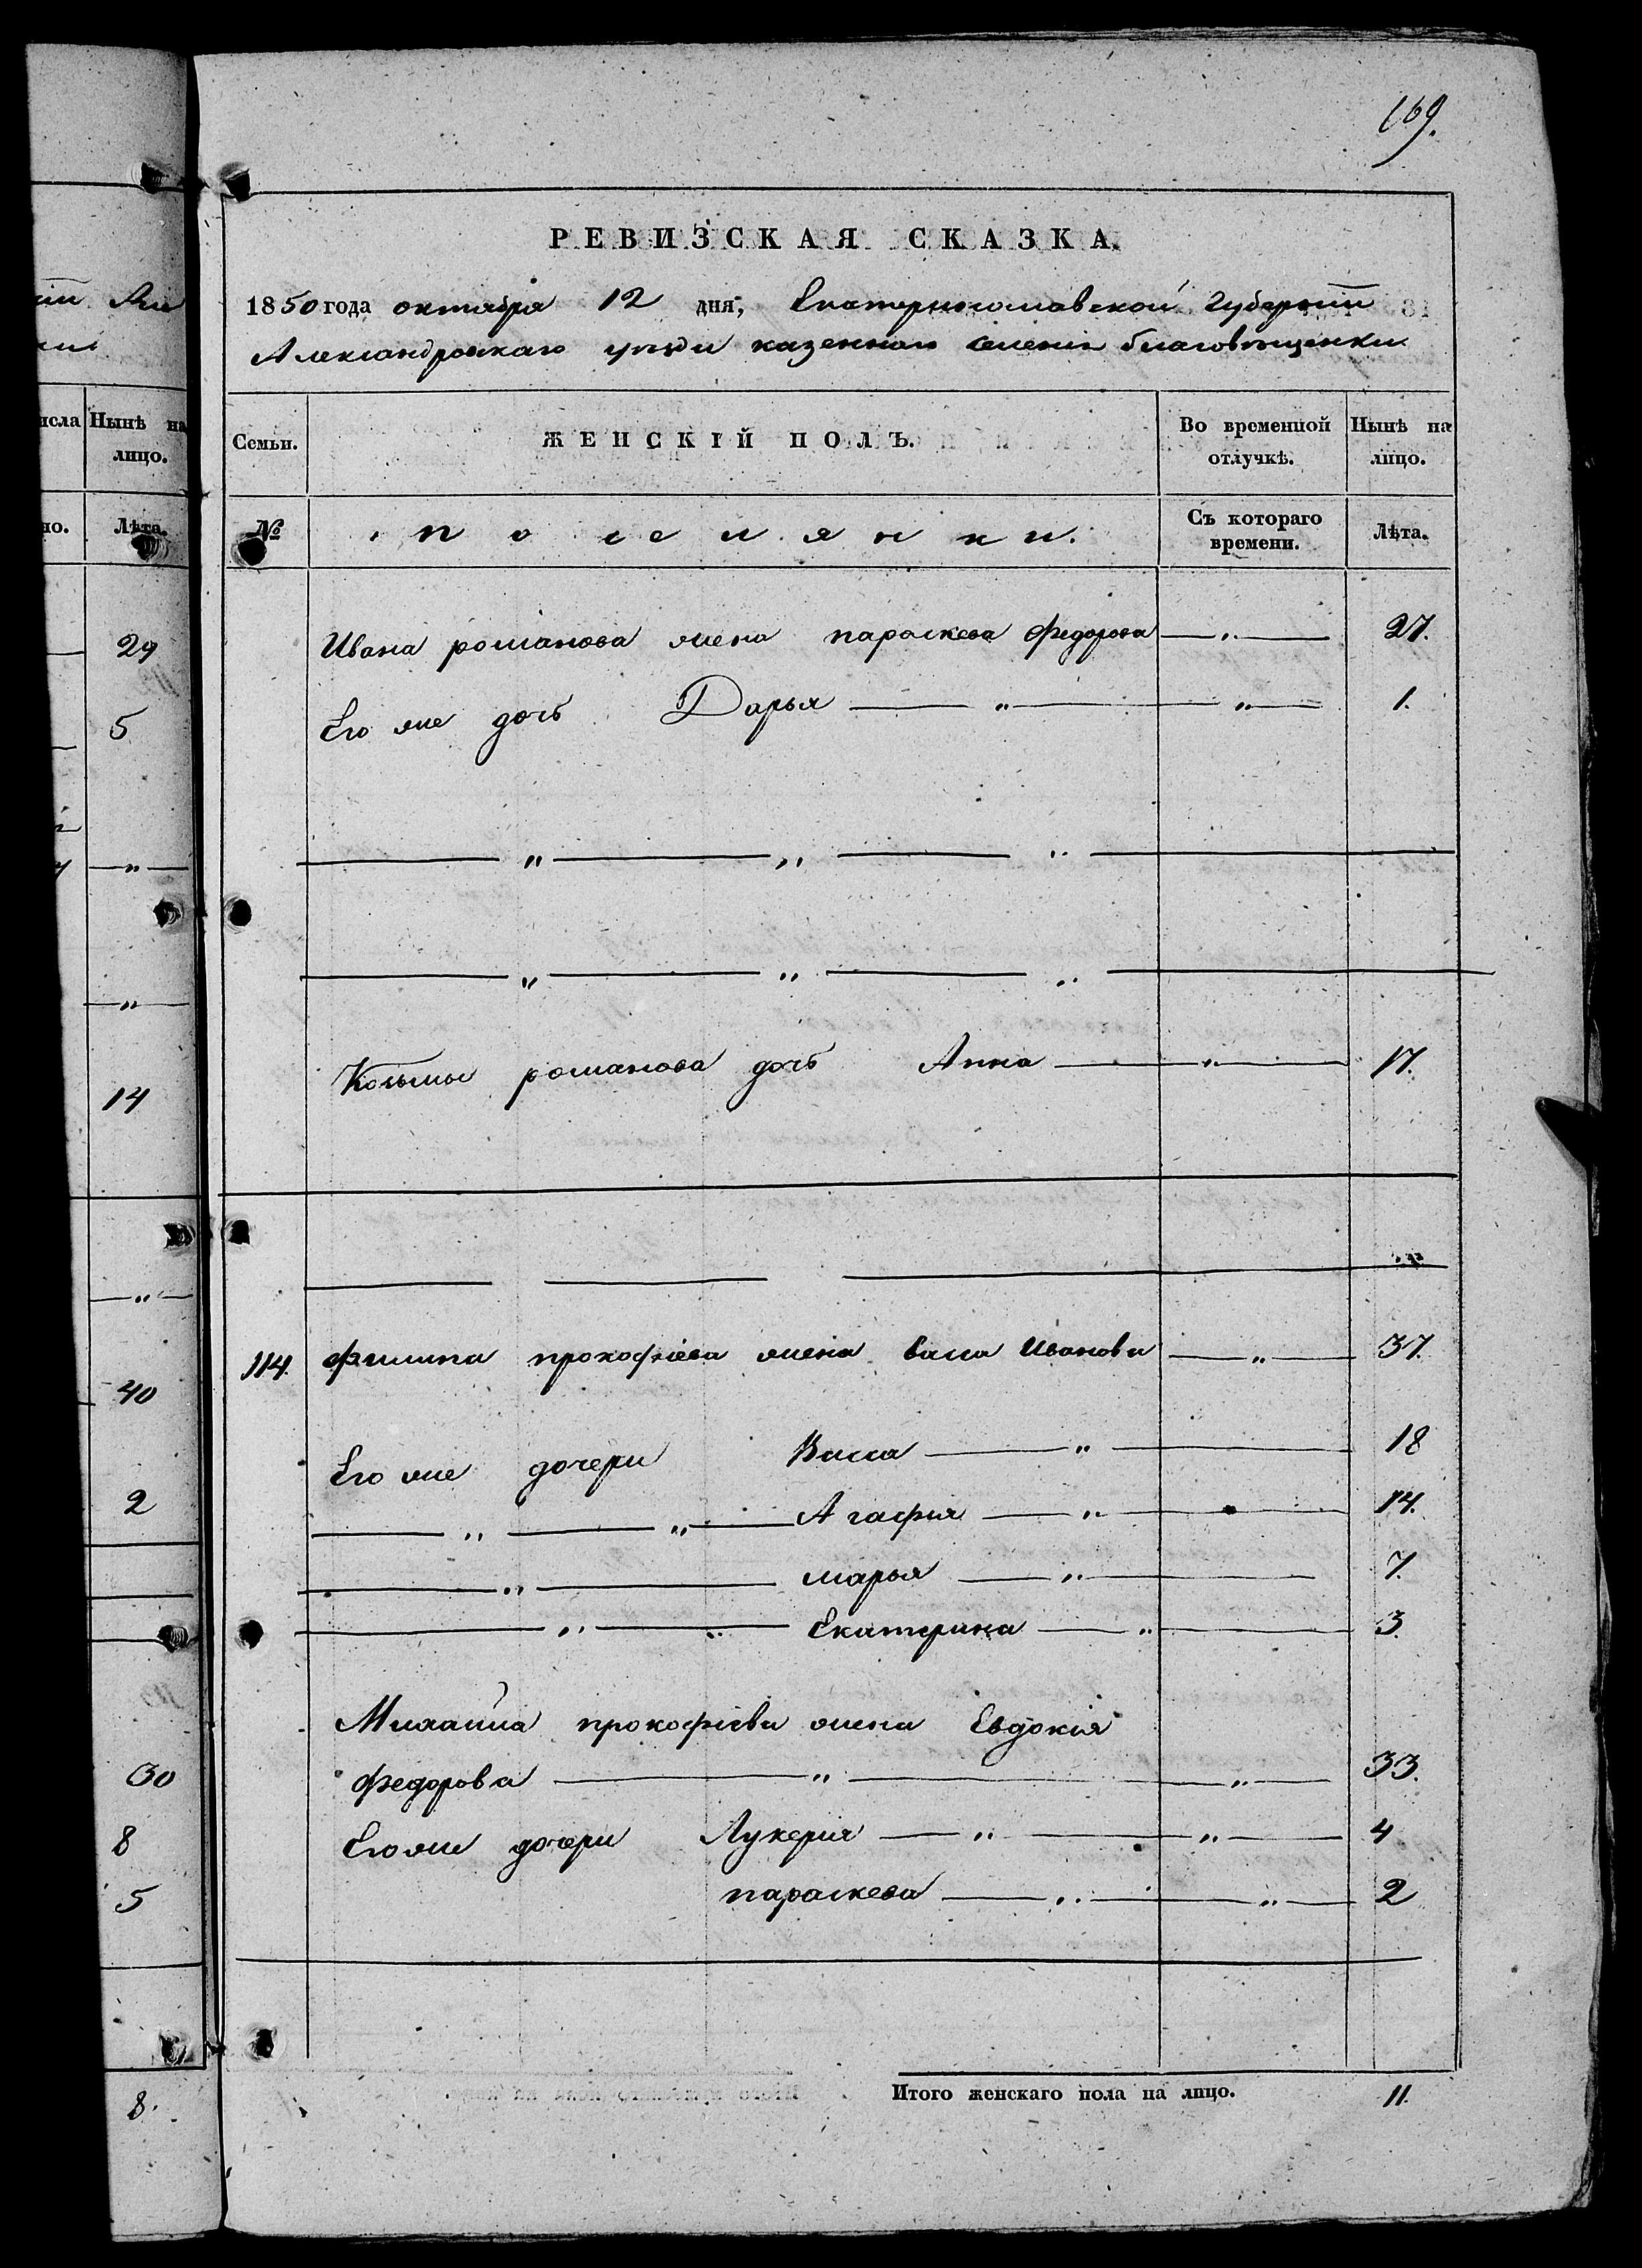 169.
РЕВИЗСКАЯ СКАЗКА.
1850 года октября 12 дня, Екатеринославской губернiи
Александровскаго уезда казеннаго селенiя благовещенки
исла
Нынѣ на лицо.
но.
Лѣта.
29
5
14
40
2
30
8
5
8.
Семьи.
ЖЕНСКIЙ ПОЛЪ.
Во временной отлучкѣ.
Нынѣ на лицо.
№
поселянки.
Съ котораго времени.
Лѣта.
Ивана романова жена параскева Федорова — „ — 27.
Его же дочь Дарья — „ — „ — 1.
— „ — „ — „ —
— „ — „ — „ —
Козьмы романова дочь Анна — „ — 17.
114. Филипа прокофiева жена васа Иванова — „ — 37.
Его же дочери Васса — „ — 18
— „ — „ — Агафия — „ — 14.
— „ — марья — „ — 7.
— „ — „ Екатерина — „ — 3.
Михаила прокофiева жена Евдокiя
Федорова — „ — „ — 33.
Его же дочери Лукерiя — „ — „ — 4
параскева — „ — „ — 2
Итого женскаго пола на лицо. 11.